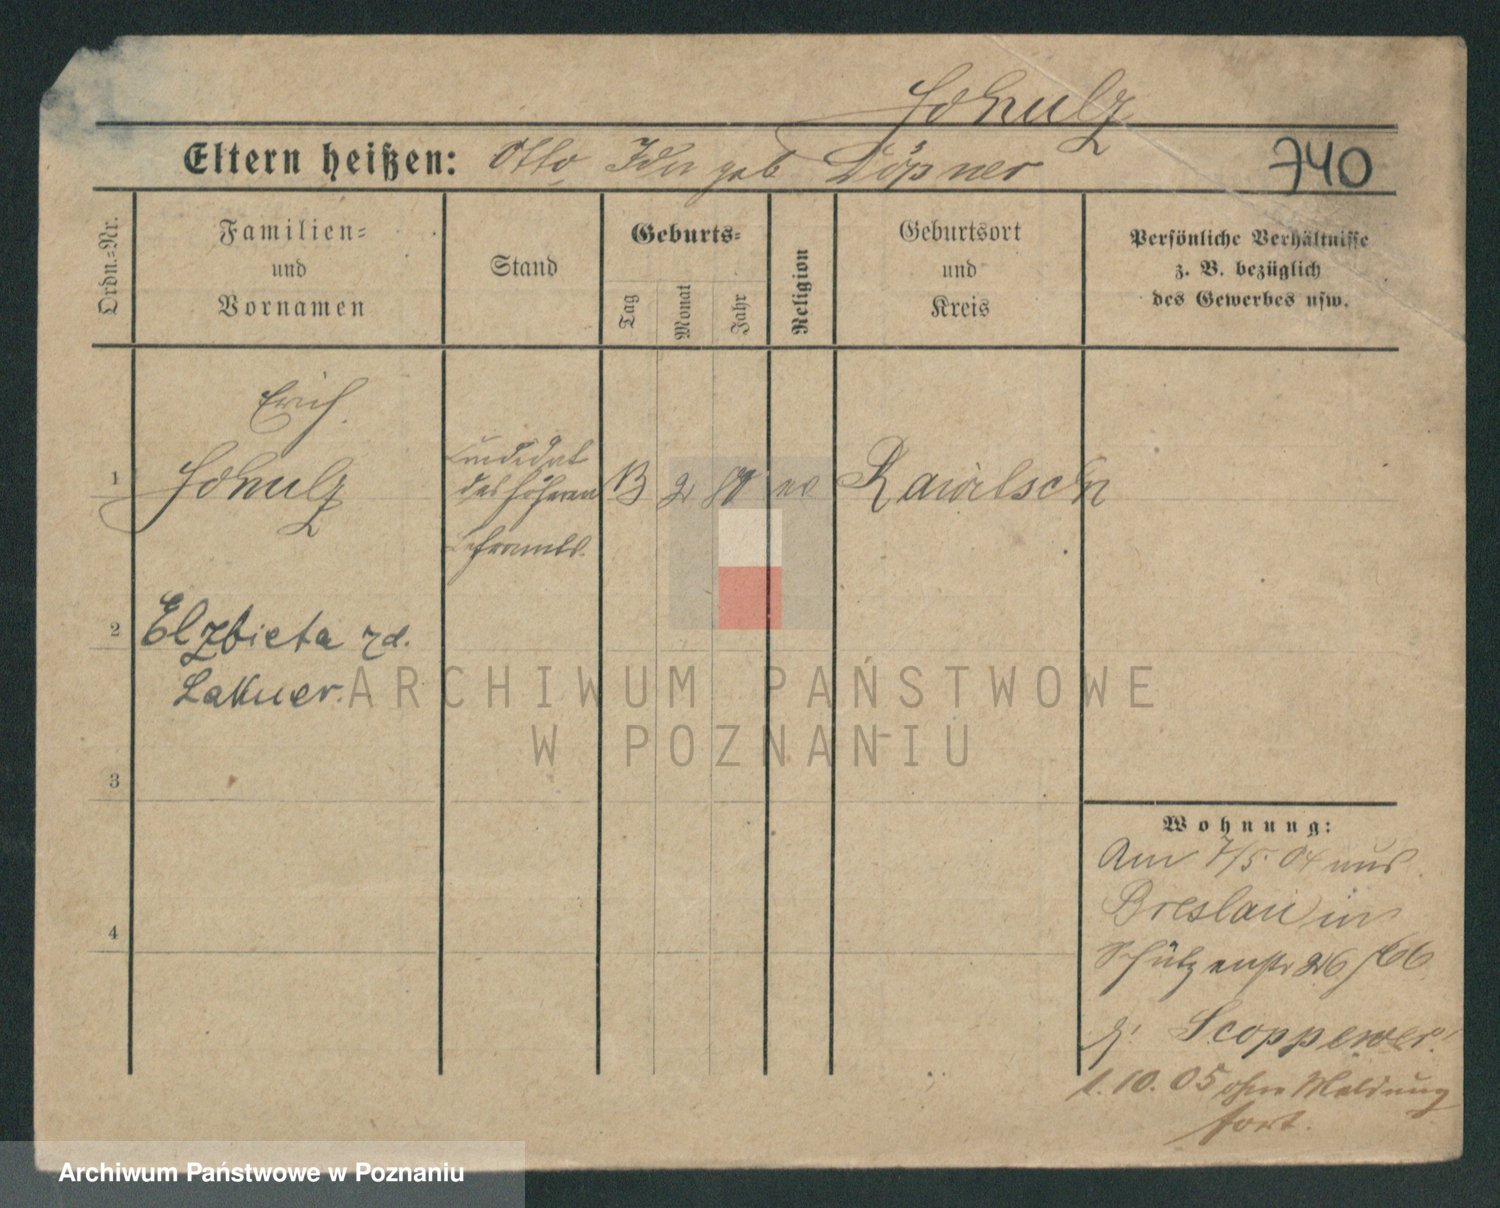 Schulz
Eltern heißen: Otto, Ida geb Döpner
740
Ordn.=Nr.
Familien=
und
Vornamen
Stand
Geburts=
Tag
Monat
Jahr
Religion
Geburtsort
und
Kreis
Persönliche Verhältnisse
z. B. bezüglich
des Gewerbes usw.
Erich
1
Schulz
Candidat
des höheren
Lehramts.
2
Rawitsch
2
Elzbieta zd.
Lakner.
ARCHIWUM PAŃSTWOWE
W POZNANIU
3
4
Wohnung:
Am 7/5. 04 aus
Breslau in
Schützenstr 26/
b/
1. 10. 05 ohne Meldung
fort.
Archiwum Państwowe w Poznaniu